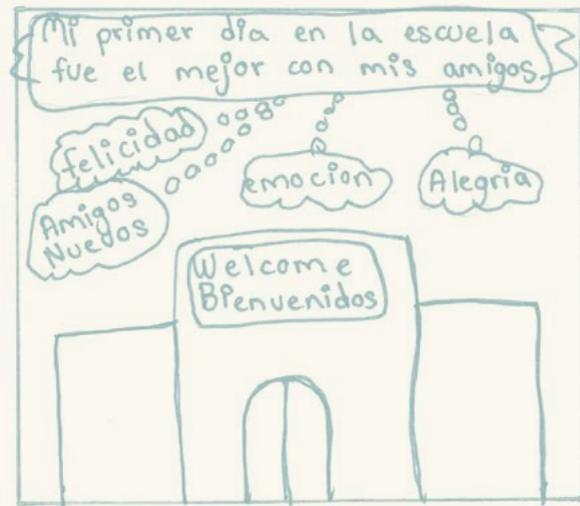 Mi primer dia en la escuela
fue el mejor con mis amigos
felicidad
Amigos
Nuevos
emocion
Alegria
Welcome
Bienvenidos